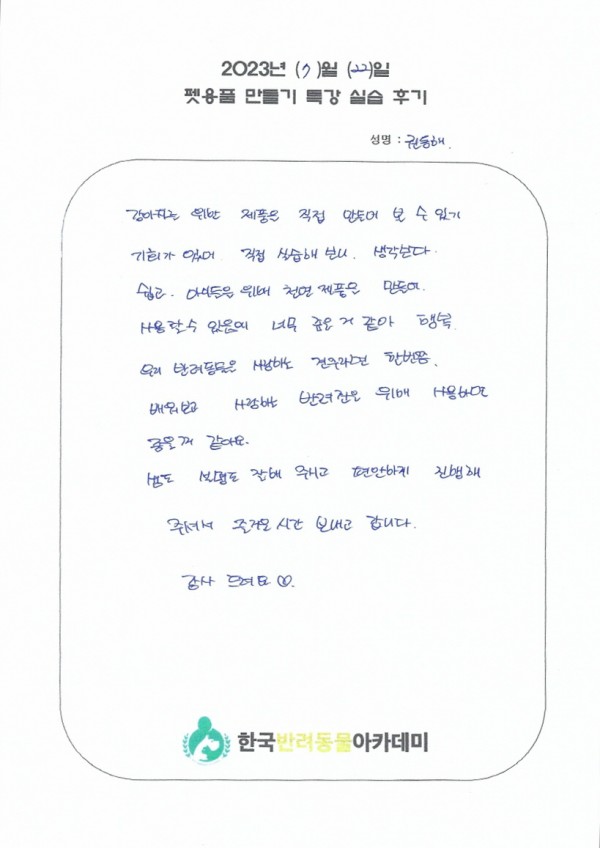 2023년 (7)월 (22)일
펫용품 만들기 특강 실습 후기
성명 : 권동해.
강아지를 위한 제품을 직접 만들어 볼 수 있기
기회가 있어 직접 실습해 보니. 생각보다
쉽고. 아이들을 위해 천연 제품을 만들어.
사용할 수 있음에 너무 좋은 거 같아 행복.
우리 반려동물을 사랑하는 견주라면 한번쯤.
배워보고 사랑하는 반려견을 위해 사용하면
좋을꺼 같아요.
쌤도 설명도 잘해 주시고 편안하게 진행해
주셔서 즐거운 시간 보내고 갑니다.
감사 드려요
한국반려동물아카데미